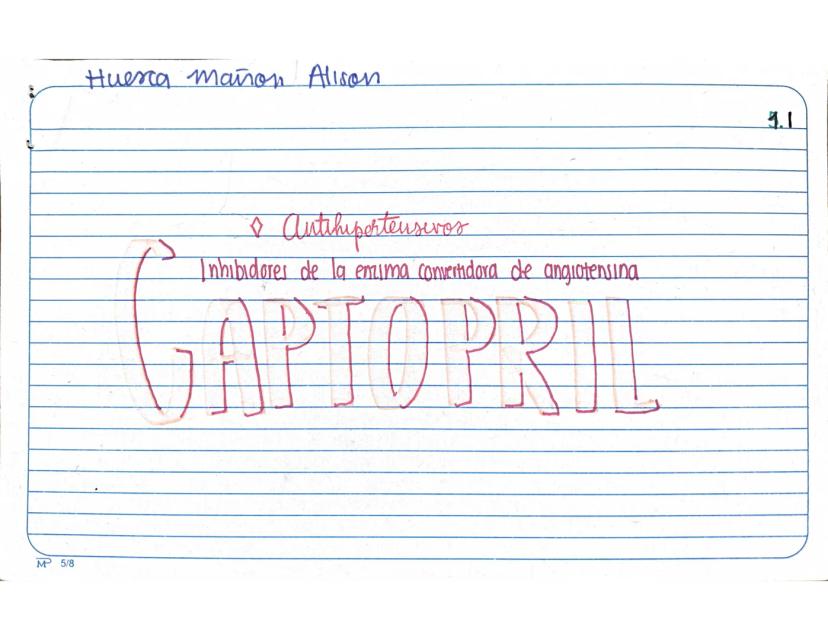 Huerta Mañon Alison
9.1
◊ Antihipertensivos
Inhibidores de la enzima convertidora de angiotensina
CAPTOPRIL
MP 5/8